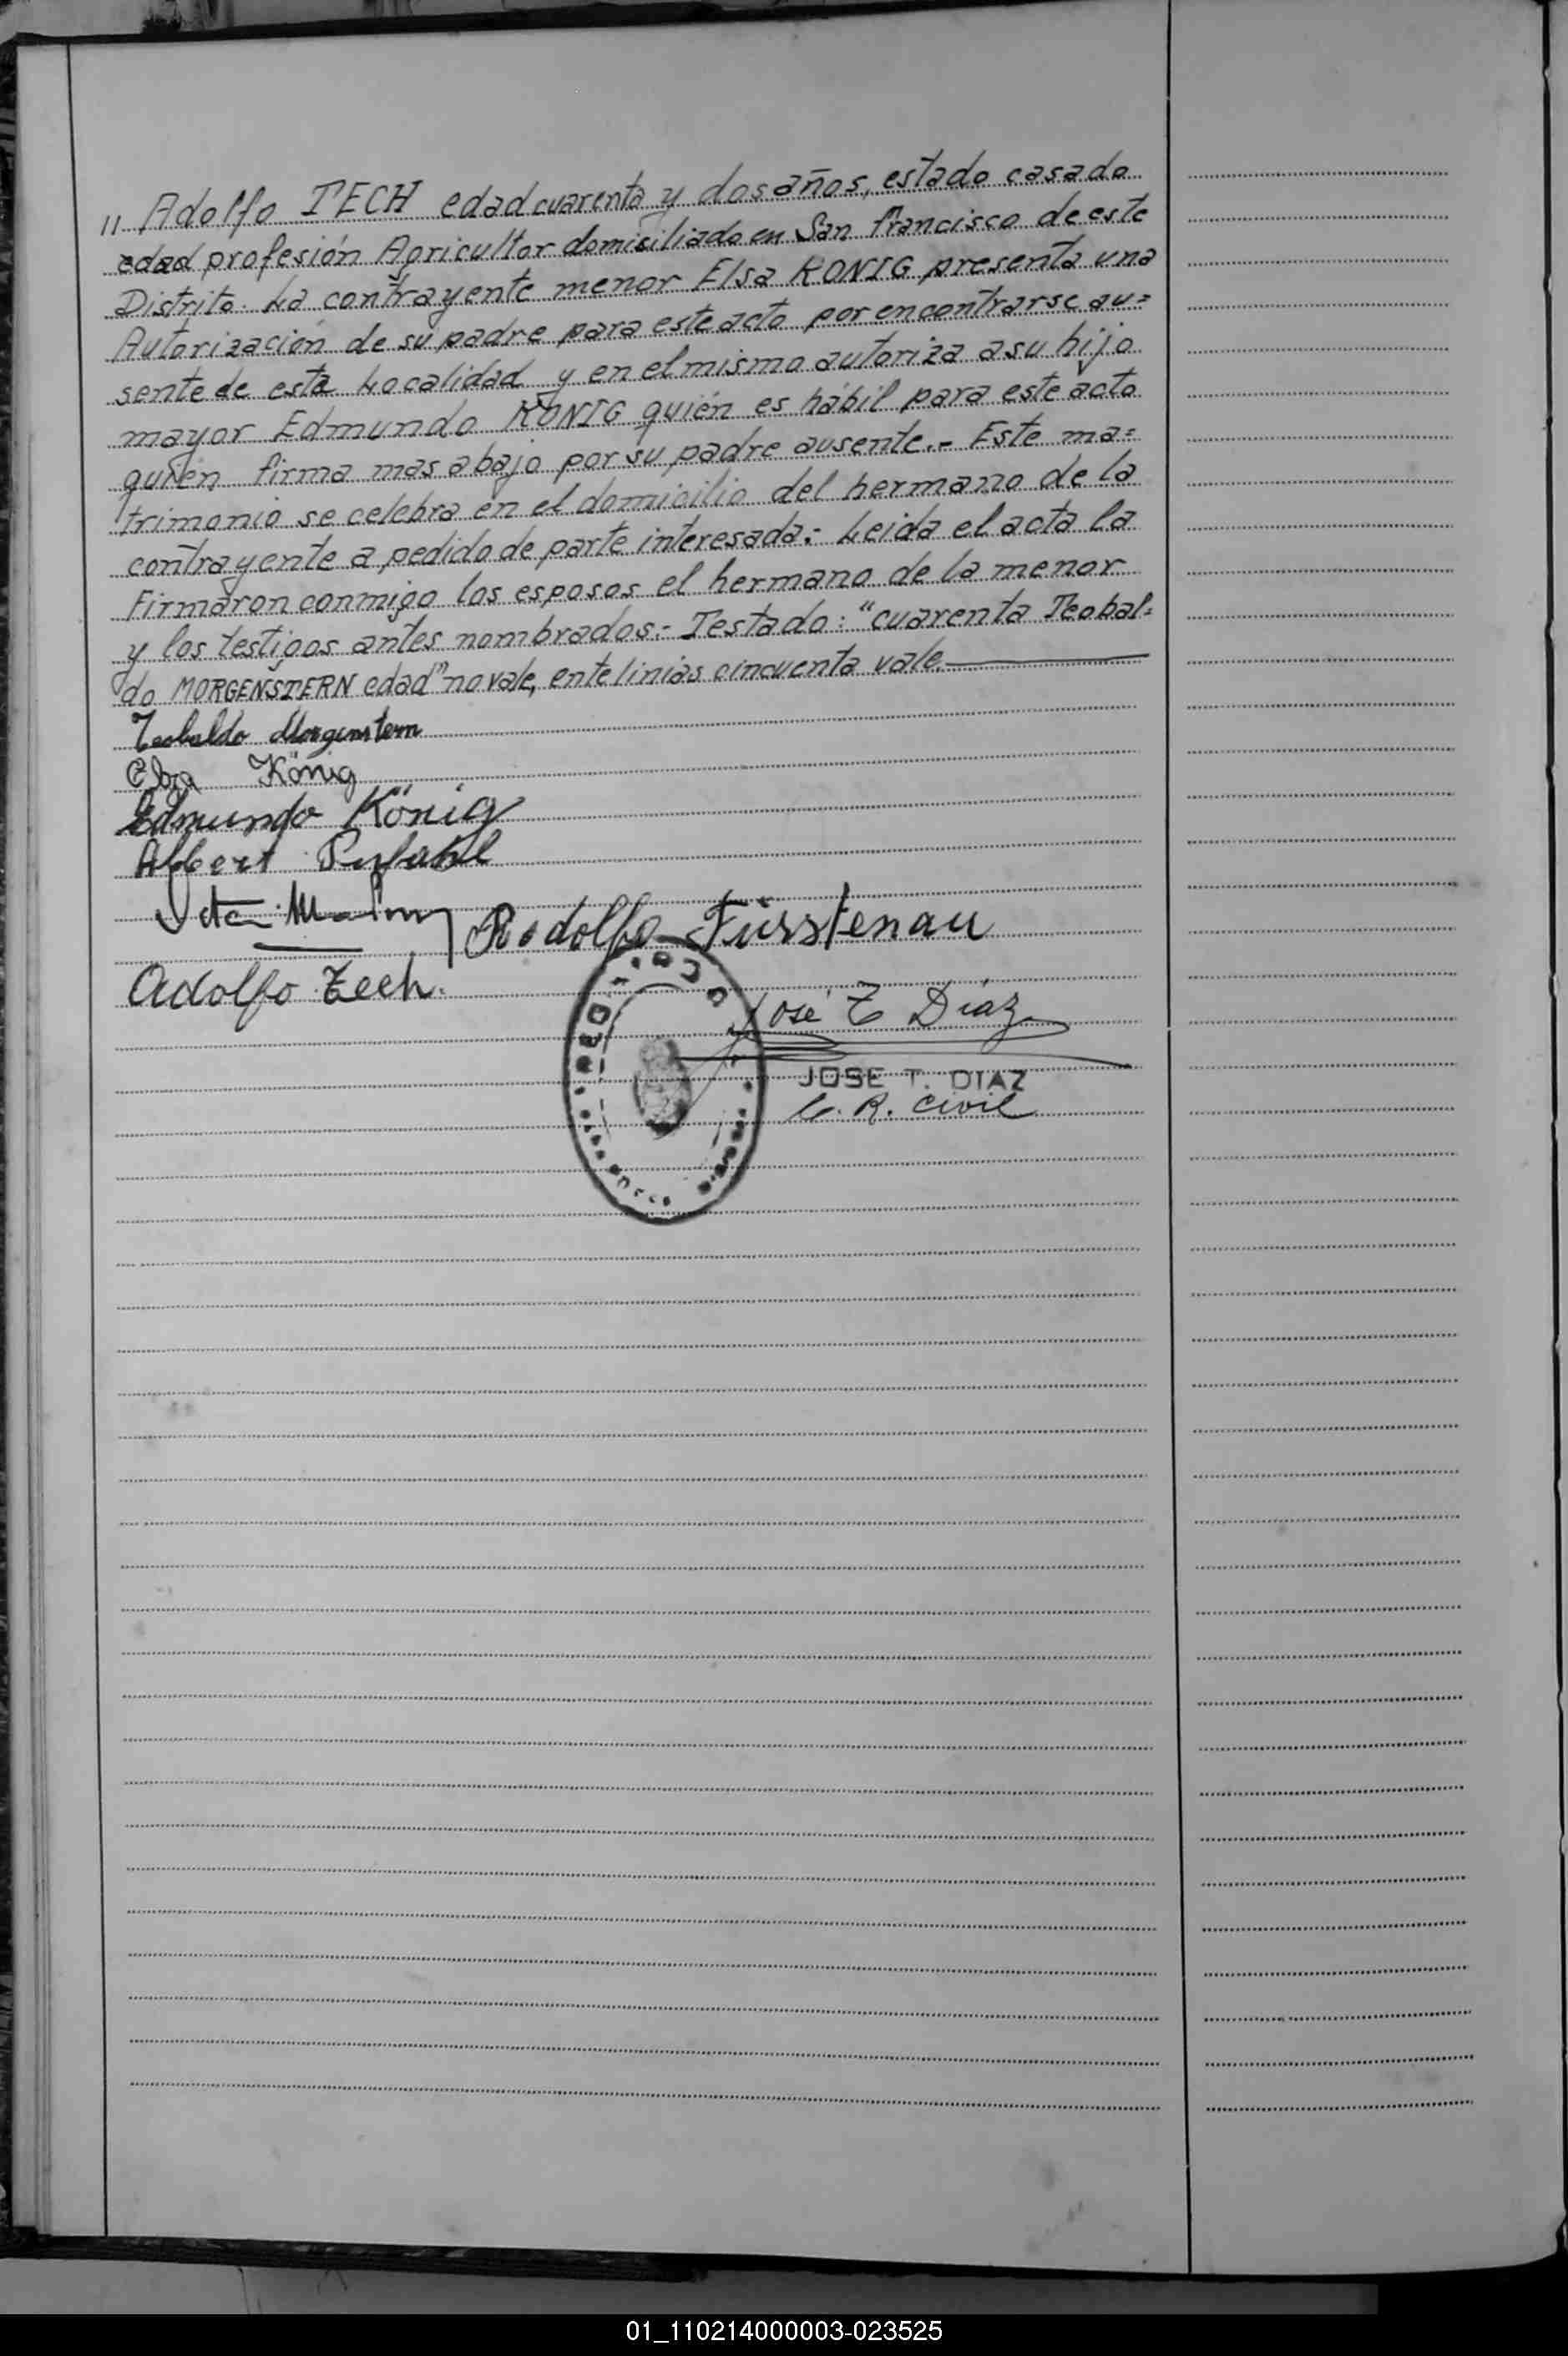 " Adolfo TECH edad cuarenta y dos años, estado casado
edad profesión Agricultor domiciliado en San francisco de este
Distrito. La contrayente menor Elsa KONIG presenta una
Autorización de su padre para este acto por encontrarse au=
sente de esta Localidad y en el mismo autoriza a su hijo
mayor Edmundo KONIG quién es hábil para este acto
quién firma mas abajo por su padre ausente.- Este ma=
trimonio se celebra en el domicilio del hermano de la
contrayente a pedido de parte interesada.- Leida el acta la
Firmaron conmigo los esposos el hermano de la menor
y los testigos antes nombrados.- Testado: "cuarenta Teobal=
do MORGENSTERN edad" no vale, entelinias cincuenta vale.
Teobaldo Morgenstern
Elsa König
Edmundo König
Albert
Rodolfo Fürstenau
Adolfo Zech.
José T Díaz
JOSE T. DIAZ
R. Civil
01_110214000003-023525